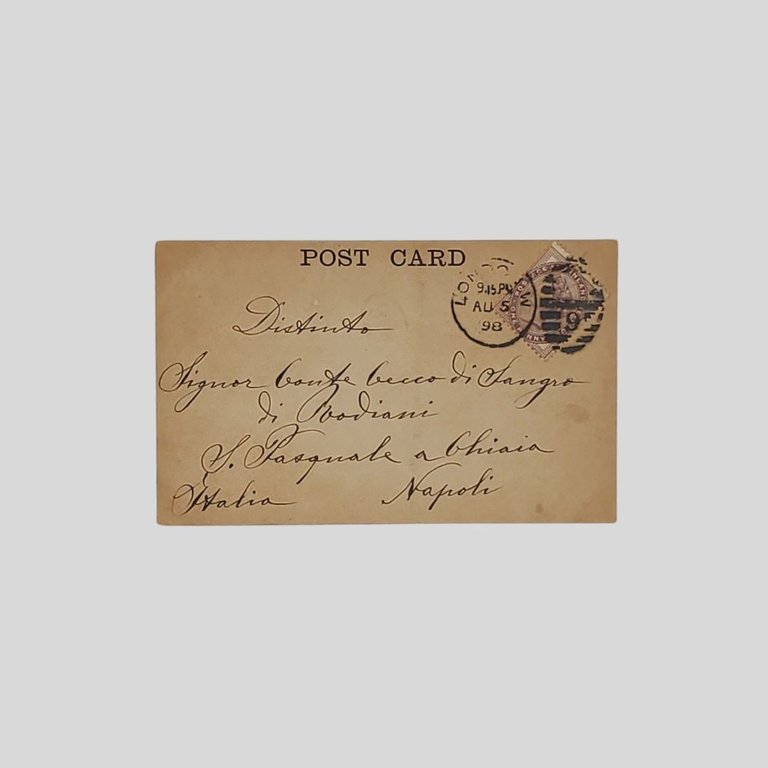 POST CARD
LONDON W
9.15.PM
AU 5
98
Distinto
Signor Conte Cecco di Sangro
di Rodiani
S. Pasquale a Chiaia
Italia Napoli